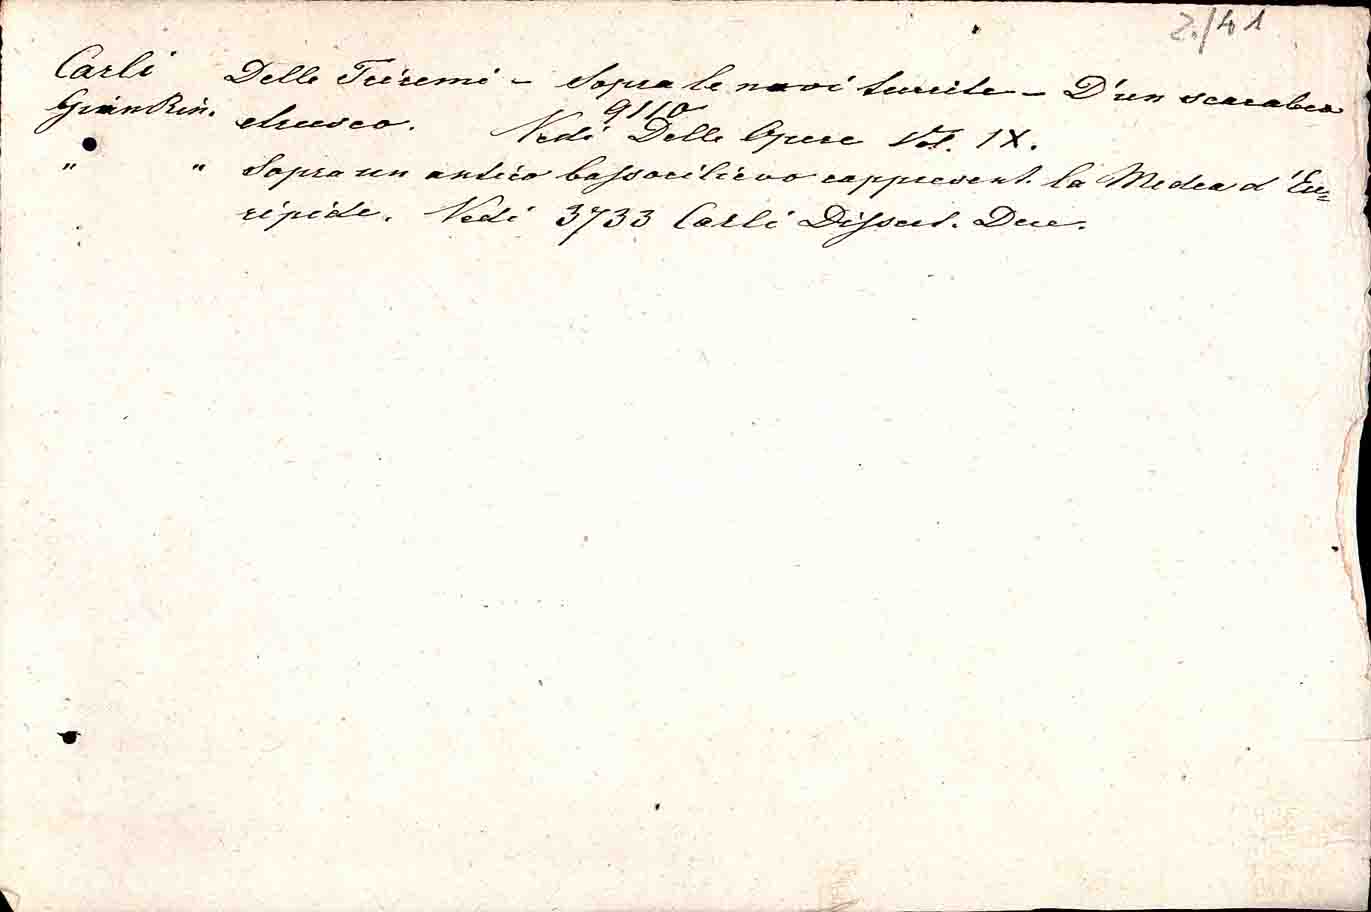 2./41
Carli Delle Triremi – Sopra le navi turrite – D'un scarabeo
Gian Rin. etrusco. Vedi 9110 Delle Opere Vol. IX.
" " Sopra un antico bassorilievo rappresent. la Medea d'Eu=
ripide. Vedi 3733 Carli Dissert. Due.